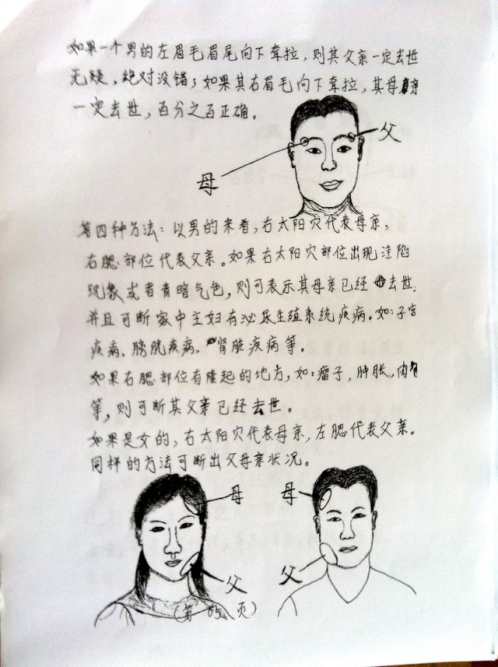 如果一个男的左眉毛眉尾向下牵拉,则其父亲一定去世
无疑,绝对没错;如果其右眉毛向下牵拉,其母亲
一定去世,百分之百正确。
父
母
第四种方法:以男的来看,右太阳穴代表母亲,
右腮部位代表父亲。如果右太阳穴部位出现洼陷
现象或者青暗气色,则可表示其母亲已经去世,
并且可断家中主妇有泌尿生殖系统疾病。如:子宫
疾病、膀胱疾病、肾脏疾病等。
如果右腮部位有隆起的地方,如:瘤子,肿胀,
等,则可断其父亲已经去世。
如果是女的,右太阳穴代表母亲,左腮代表父亲。
同样的方法可断出父母亲状况。
母
母
父
父
(第 页)